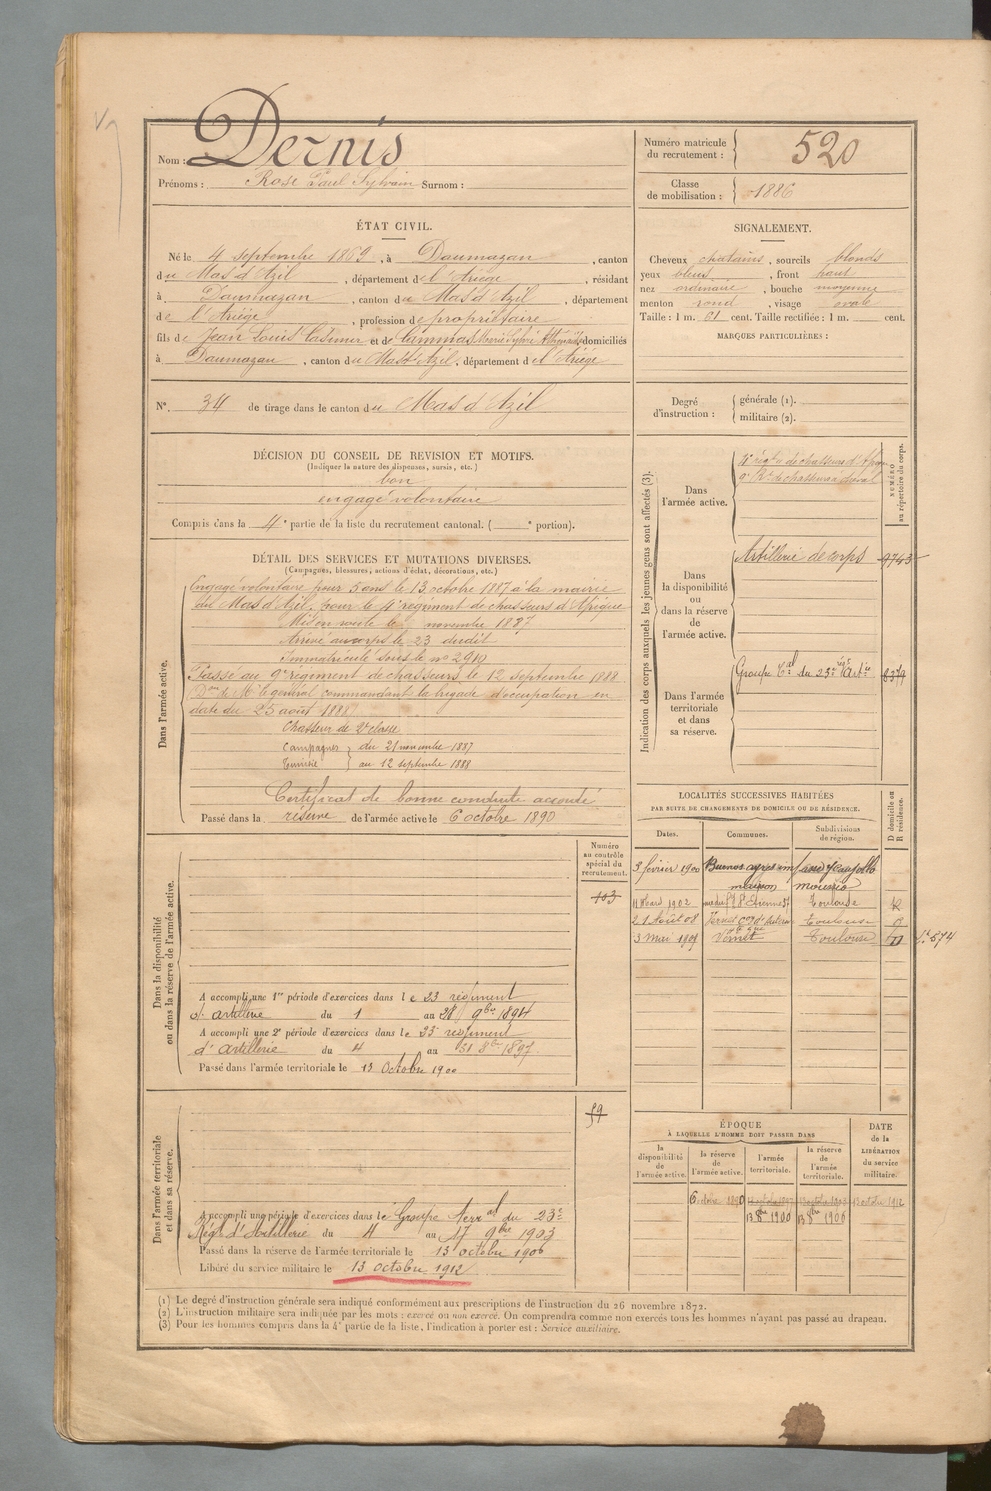 Nom : Dernis
Prénoms : Rose Paul Sylvain Surnom :
Numéro matricule du recrutement : 520
Classe de mobilisation : 1886
ÉTAT CIVIL.
Né le 4 septembre 1869, à Daumazan, canton
du Mas d'Azil, département de l'Ariège, résidant
à Daumazan, canton du Mas d'Azil, département
de l'Ariège, profession de propriétaire
fils de Jean Louis Casimir et de Cammas Marie Sylvie domiciliés
à Daumazan, canton du Mas d'Azil, département de l'Ariège
N°. 34 de tirage dans le canton du Mas d'Azil
SIGNALEMENT.
Cheveux chatains, sourcils blonds
yeux bleus, front haut
nez ordinaire, bouche moyenne
menton rond, visage ovale
Taille : 1 m. 61 cent. Taille rectifiée : 1 m. cent.
MARQUES PARTICULIÈRES :
Degré d'instruction : générale (1).
militaire (2).
DÉCISION DU CONSEIL DE REVISION ET MOTIFS.
(Indiquer la nature des dispenses, sursis, etc.)
bon
engagé volontaire
Compris dans la 4e partie de la liste du recrutement cantonal. ( e portion).
DÉTAIL DES SERVICES ET MUTATIONS DIVERSES.
(Campagnes, blessures, actions d'éclat, décorations, etc.)
Dans l'armée active.
Engagé volontaire pour 5 ans le 13 octobre 1887 à la mairie
du Mas d'Azil, pour le 4e régiment de chasseurs d'Afrique
Mis en route le novembre 1887
Arrivé au corps le 23 dudit
Immatriculé sous le no 2910
Passé au 9e régiment de chasseurs le 12 septembre 1888
Don de Mr le général commandant la brigade d'occupation en
date du 25 août 1888
Chasseur de 2e classe
Campagnes } du 21 novembre 1887
Tunisie } au 12 septembre 1888
Certificat de bonne conduite accordé
Passé dans la réserve de l'armée active le 6 octobre 1890
Indication des corps auxquels les jeunes gens sont affectés (3).
NUMÉRO au répertoire du corps.
Dans l'armée active.
4e régt de chasseurs d'Afrique
9e Rt de chasseurs à cheval
Dans la disponibilité ou dans la réserve de l'armée active.
Artillerie de corps 9743
Dans l'armée territoriale et dans sa réserve.
Groupe Tal du 23e régt Artie 8379
LOCALITÉS SUCCESSIVES HABITÉES
PAR SUITE DE CHANGEMENTS DE DOMICILE OU DE RÉSIDENCE.
Dates. Communes. Subdivisions de région. D domicile ou R résidence.
3 février 1900 Buenos ayres
maison
11 1902 St Etienne Toulouse R
21 Août 08 Toulouse
3 Mai 1909 Vernet Toulouse D
Dans la disponibilité ou dans la réserve de l'armée active.
Numéro au contrôle spécial du recrutement.
103
A accompli une 1re période d'exercices dans le 23 régiment
d'artillerie du 1 au 28 9bre 1894
A accompli une 2e période d'exercices dans le 23 régiment
d'Artillerie du 4 au 31 8bre 1897.
Passé dans l'armée territoriale le 13 Octobre 1900
Dans l'armée territoriale et dans sa réserve.
59
A accompli une période d'exercices dans le Groupe Terral du 23e
Régt d'Artillerie du 4 au 17 9bre 1903
Passé dans la réserve de l'armée territoriale le 13 octobre 1906
Libéré du service militaire le 13 octobre 1912
ÉPOQUE
À LAQUELLE L'HOMME DOIT PASSER DANS
la disponibilité de l'armée active. la réserve de l'armée active. l'armée territoriale. la réserve de l'armée territoriale. DATE de la LIBÉRATION du service militaire.
6 octobre 1890 13 octobre 1897 13 octobre 1903 13 octobre 1912
13 8bre 1900 13 8bre 1906
(1) Le degré d'instruction générale sera indiqué conformément aux prescriptions de l'instruction du 26 novembre 1872.
(2) L'instruction militaire sera indiquée par les mots : exercé ou non exercé. On comprendra comme non exercés tous les hommes n'ayant pas passé au drapeau.
(3) Pour les hommes compris dans la 4e partie de la liste, l'indication à porter est : Service auxiliaire.